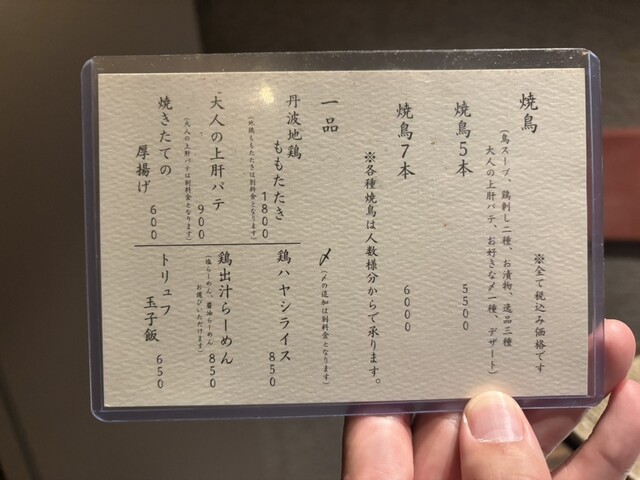 焼鳥
※全て税込み価格です
（鳥スープ、鶏刺し二種、お漬物、逸品三種
大人の上肝パテ、お好きな〆一種、デザート）
焼鳥5本 5500
焼鳥7本 6000
※各種焼鳥は人数様分からで承ります。
一品
丹波地鶏
ももたたき 1800
（地鶏ももたたきは別料金となります）
大人の上肝パテ 900
（大人の上肝パテは別料金となります）
焼きたての
厚揚げ 600
〆（〆の追加は別料金となります）
鶏ハヤシライス 850
鶏出汁らーめん 850
（塩らーめん、醤油らーめん
お選びいただけます）
トリュフ
玉子飯 650